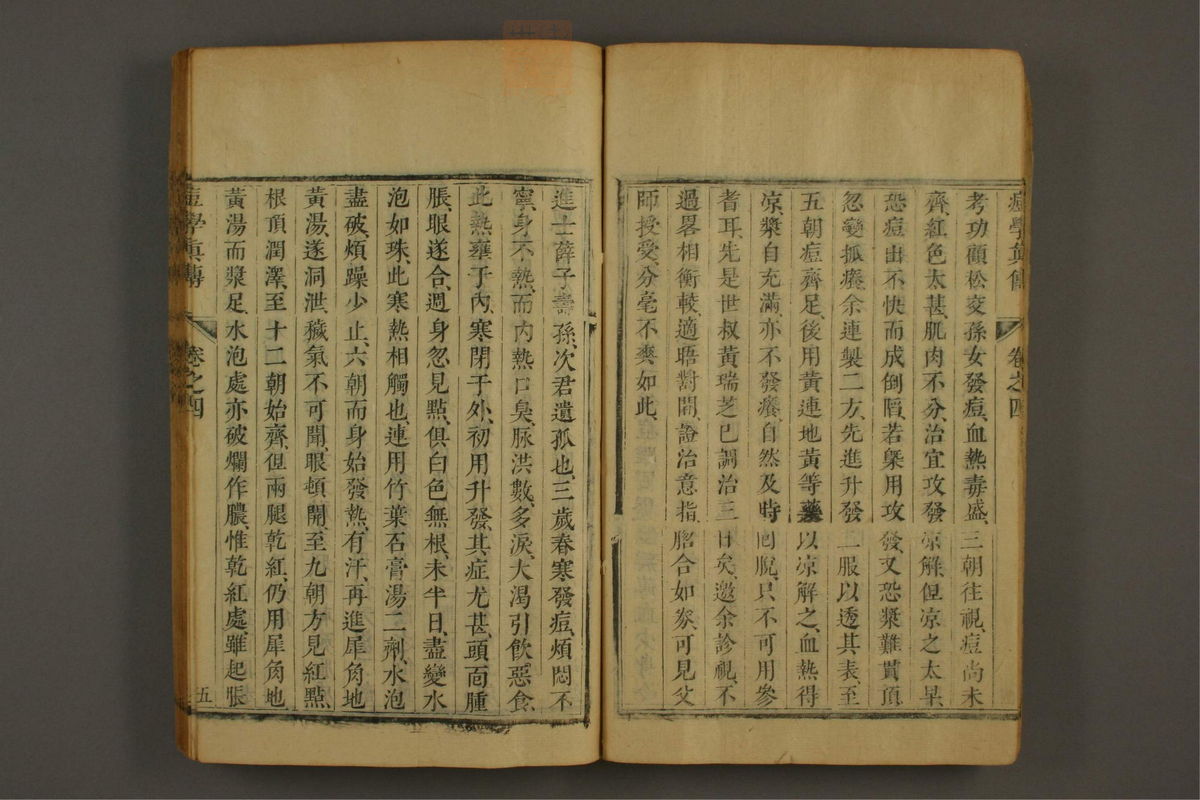 痘學真傳 卷之四
考功顧松交孫女發痘、血熱毒盛、三朝往視、痘尚未
齊、紅色太甚、肌肉不分、治宜攻發凉解、但凉之太早、
恐痘出不快而成倒陷、若槩用攻發、又恐漿難貫頂、
忽變孤癢、余連製二方、先進升發一服以透其表、至
五朝痘齊足、後用黃連地黃等藥以凉解之、血熱得
凉、漿自充滿、亦不發癢、自然及時回脫、只不可用參
耆耳、先是世叔黃瑞芝已調治三日矣、邀余診視、不
過畧相衡較、適晤對間、證治意指、脗合如家、可見父
師授受、分毫不爽如此、
進士薛子壽孫、次君遺孤也、三歲春寒發痘、煩悶不
寧、身不熱、而內熱口臭、脉洪數、多淚、大渴引飲、惡食、
此熱壅于內、寒閉于外、初用升發、其症尤甚、頭面腫
脹、眼遂合、週身忽見點、俱白色無根、未半日、盡變水
泡如珠、此寒熱相觸也、連用竹葉石膏湯二劑、水泡
盡破、煩躁少止、六朝而身始發熱、有汗、再進犀角地
黃湯、遂洞泄、穢氣不可聞、眼頓開、至九朝方見紅點、
根頂潤澤、至十二朝始齊、但兩腿乾紅、仍用犀角地
黃湯而漿足、水泡處亦破爛作膿、惟乾紅處、雖起脹
痘學真傳 卷之四 五